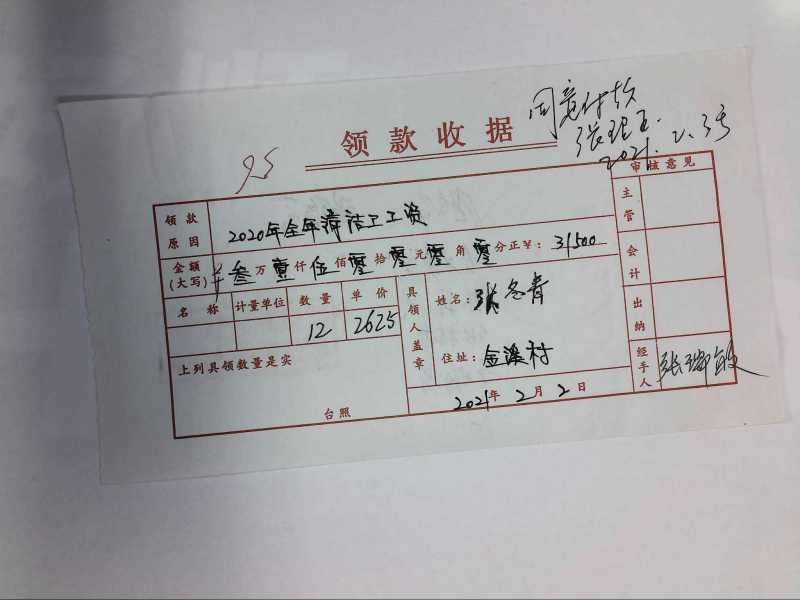 同意付款
领款收据
2021.2.3号
95
审核意见
领款原因 2020年全年清洁工工资
主管
金额(大写) 叁万壹仟伍佰零拾零元零角零分正¥：31500
会计
名称 计量单位 数量 单价
12 2625
具领人盖章
姓名：张冬青
住址：金溪村
出纳
上列具领数量是实
台照
经手人 张瑞敏
2021年2月2日